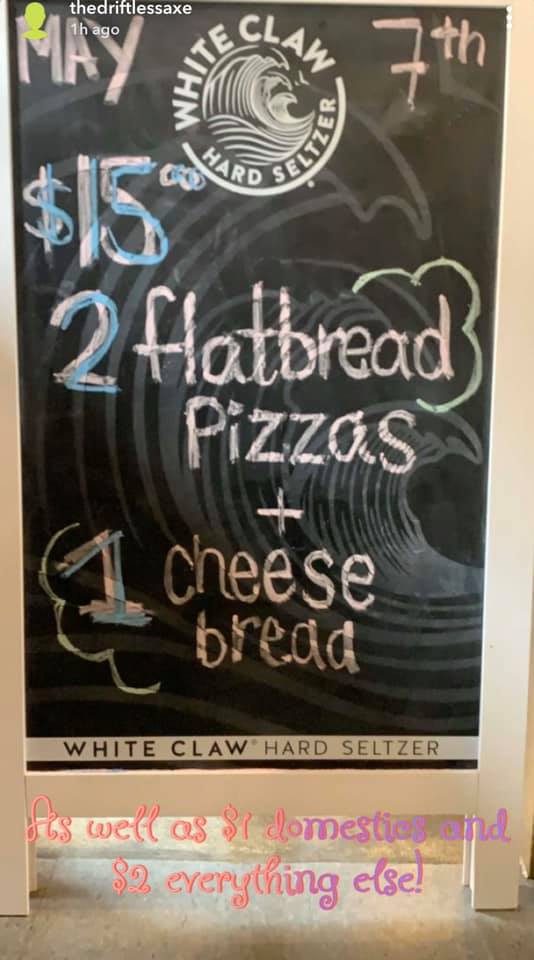 thedriftlessaxe
1h ago
MAY 7th
WHITE CLAW
HARD SELTZER
$15.00
2 flatbread
Pizzas
+
1 cheese
bread
WHITE CLAW® HARD SELTZER
As well as $1 domestics and
$2 everything else!